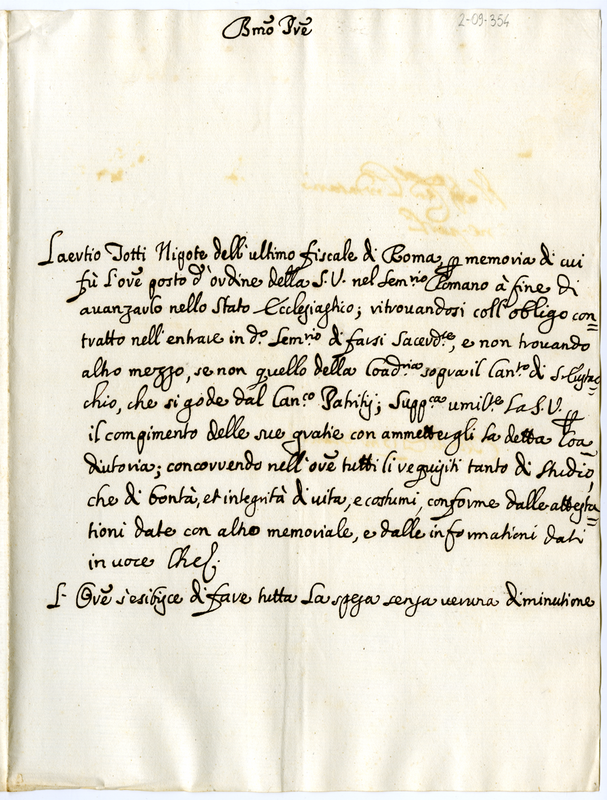 Bmo Pre
2-09-354
Laertio Totti Nipote dell'ultimo fiscale di Roma, p memoria di cui
fù l'ore posto d'ordine della S.V. nel Sem.rio Romano à fine di
auanzarlo nello stato Ecclesiastico; ritrouandosi coll'obligo con=
tratto nell'entrare in d.o Sem.rio di farsi Sacerd.te, e non trouando
altro mezzo, se non quello della Coad.ria sopra il Can.to di S. Eusta=
chio, che si gode dal Can.co Patritij; Supp.ca umilte La S.V. p
il compimento delle sue gratie con ammettergli la detta Coa=
diutoria; concorrendo nell'ore tutti li requisiti tanto di studio,
che di bontà, et integrità di uita, e costumi, conforme dalle attesta=
tioni date con altro memoriale, e dalle informationi dati
in uoce Che &.
L'Ore s'esibisce di fare tutta la spesa senza ueruna diminutione